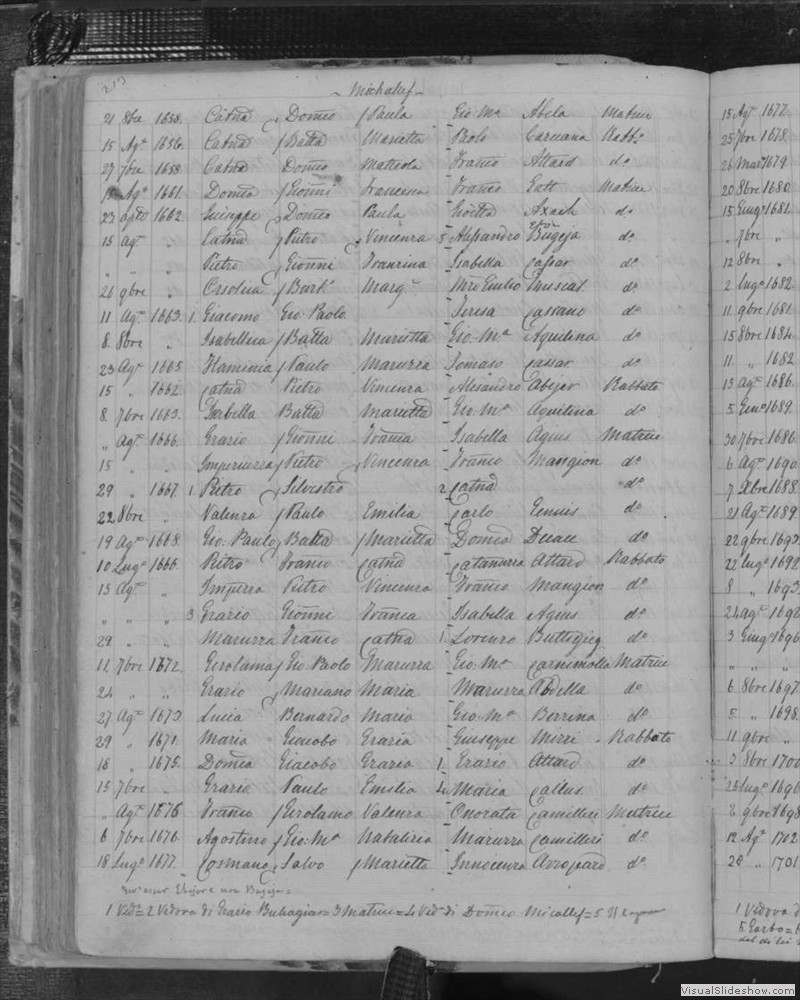 213
Michallef
21 8bre 1658. Catnã Domco Paula Gio: Mª Abela Matrice
15 Agº 1656. Catnã Batta Marietta Paolo Caruana Rabbº
27 7bre 1658 Catnã Domco Matteola Franco Attard dº
Agº 1661. Domca Gionni Francina Franco Matrice
23 1662. Giuseppe Domco Paula Axach dº
15 Agº " Catnã Pietro Vincenza 5 Alessandro Bugeja dº
" " " Pietro Gionni Isabella Cassar dº
26 9bre " Orsolica Bartº Margª Muscat dº
11 Agº 1663. 1. Giacomo Gio: Paolo Teresa Cassano dº
8. 8bre " Isabellica Batta Marietta Gio: Mª Aquilina dº
23 Agº 1665 Flaminia Paulo Maruzza Tomaso Cassar dº
15 " 1662. Catnã Pietro Vincenza Alesandro Rabbato
8. 7bre 1663. Batta Marietta Gio: Mª Aquilina dº
" Agº 1666. Grazio Gionni Franca Isabella Agius Matrice
15 " " Imperiuzza Pietro Vincenza Franco Mangion dº
29 " 1667. 1. Pietro Silvestro 2 Catnã dº
22 8bre " Valenza Paulo Emilia Carlo Ennius dº
19 Agº 1668. Gio: Paulo Batta Marietta Domca dº
10 Lugº 1666. Pietro Franco Catnã Catanuzza Attard Rabbato
15 Agº " Imperza Pietro Vincenza Franco Mangion dº
" " " 3 Grazio Gionni Franca Isabella Agius dº
29 " " Maruzza Franco Catnã 1. Lorenzo Buttigieg dº
11 7bre 1672. Girolama Gio: Paolo Maruzza Gio: Mª Matrice
24 " " Grazio Mariano Maria Maruzza Abdella dº
27 Agº 1673 Lucia Bernardo Maria Gio: Mª Berrina dº
29 " 1671. Maria Giacobo Grazia Giuseppe Mizzi Rabbato
18 " 1675. Domca Giacobo Grazia 1. Grazio Attard dº
15 7bre " Grazia Paulo Emilia 4 Maria Callus dº
" Agº 1676 Franco Girolamo Valenza Onorata Camilleri Matrice
6 7bre 1676. Agostino Gio: Mª Natalizia Maruzza Camilleri dº
18 Lugº 1677. Cosmano Salvo Marietta Innocenza dº
e non Bugeja=
1 Vedª= 2 Vedova di Grazio Buhagiar= 3 Matrice= 4 Vedª di Domco Micallef= 5
15 Agº 1677.
25 7bre 1678.
26 Marº 1679.
20 8bre 1680.
15 Giugº 1681.
" 7bre "
12 8bre "
2 Lugº 1682.
11 9bre 1681.
15 8bre 1684.
11 " 1682
13 Agº 1686.
5 Genº 1689.
30 7bre 1686.
6 Agº 1690.
7 Xbre 1688.
21 Agº 1689.
22 9bre 1693.
22 Lugº 1692
8 " 1693.
24 Agº 1692
3 Giugº 1696
" " "
6 8bre 1697.
5 " 1698.
11 9bre "
3 8bre 1700
25 Lugº 1696
2 9bre 1698
12 Agº 1702
20 " 1701
1 Vedova d
VisualSlideshow.com